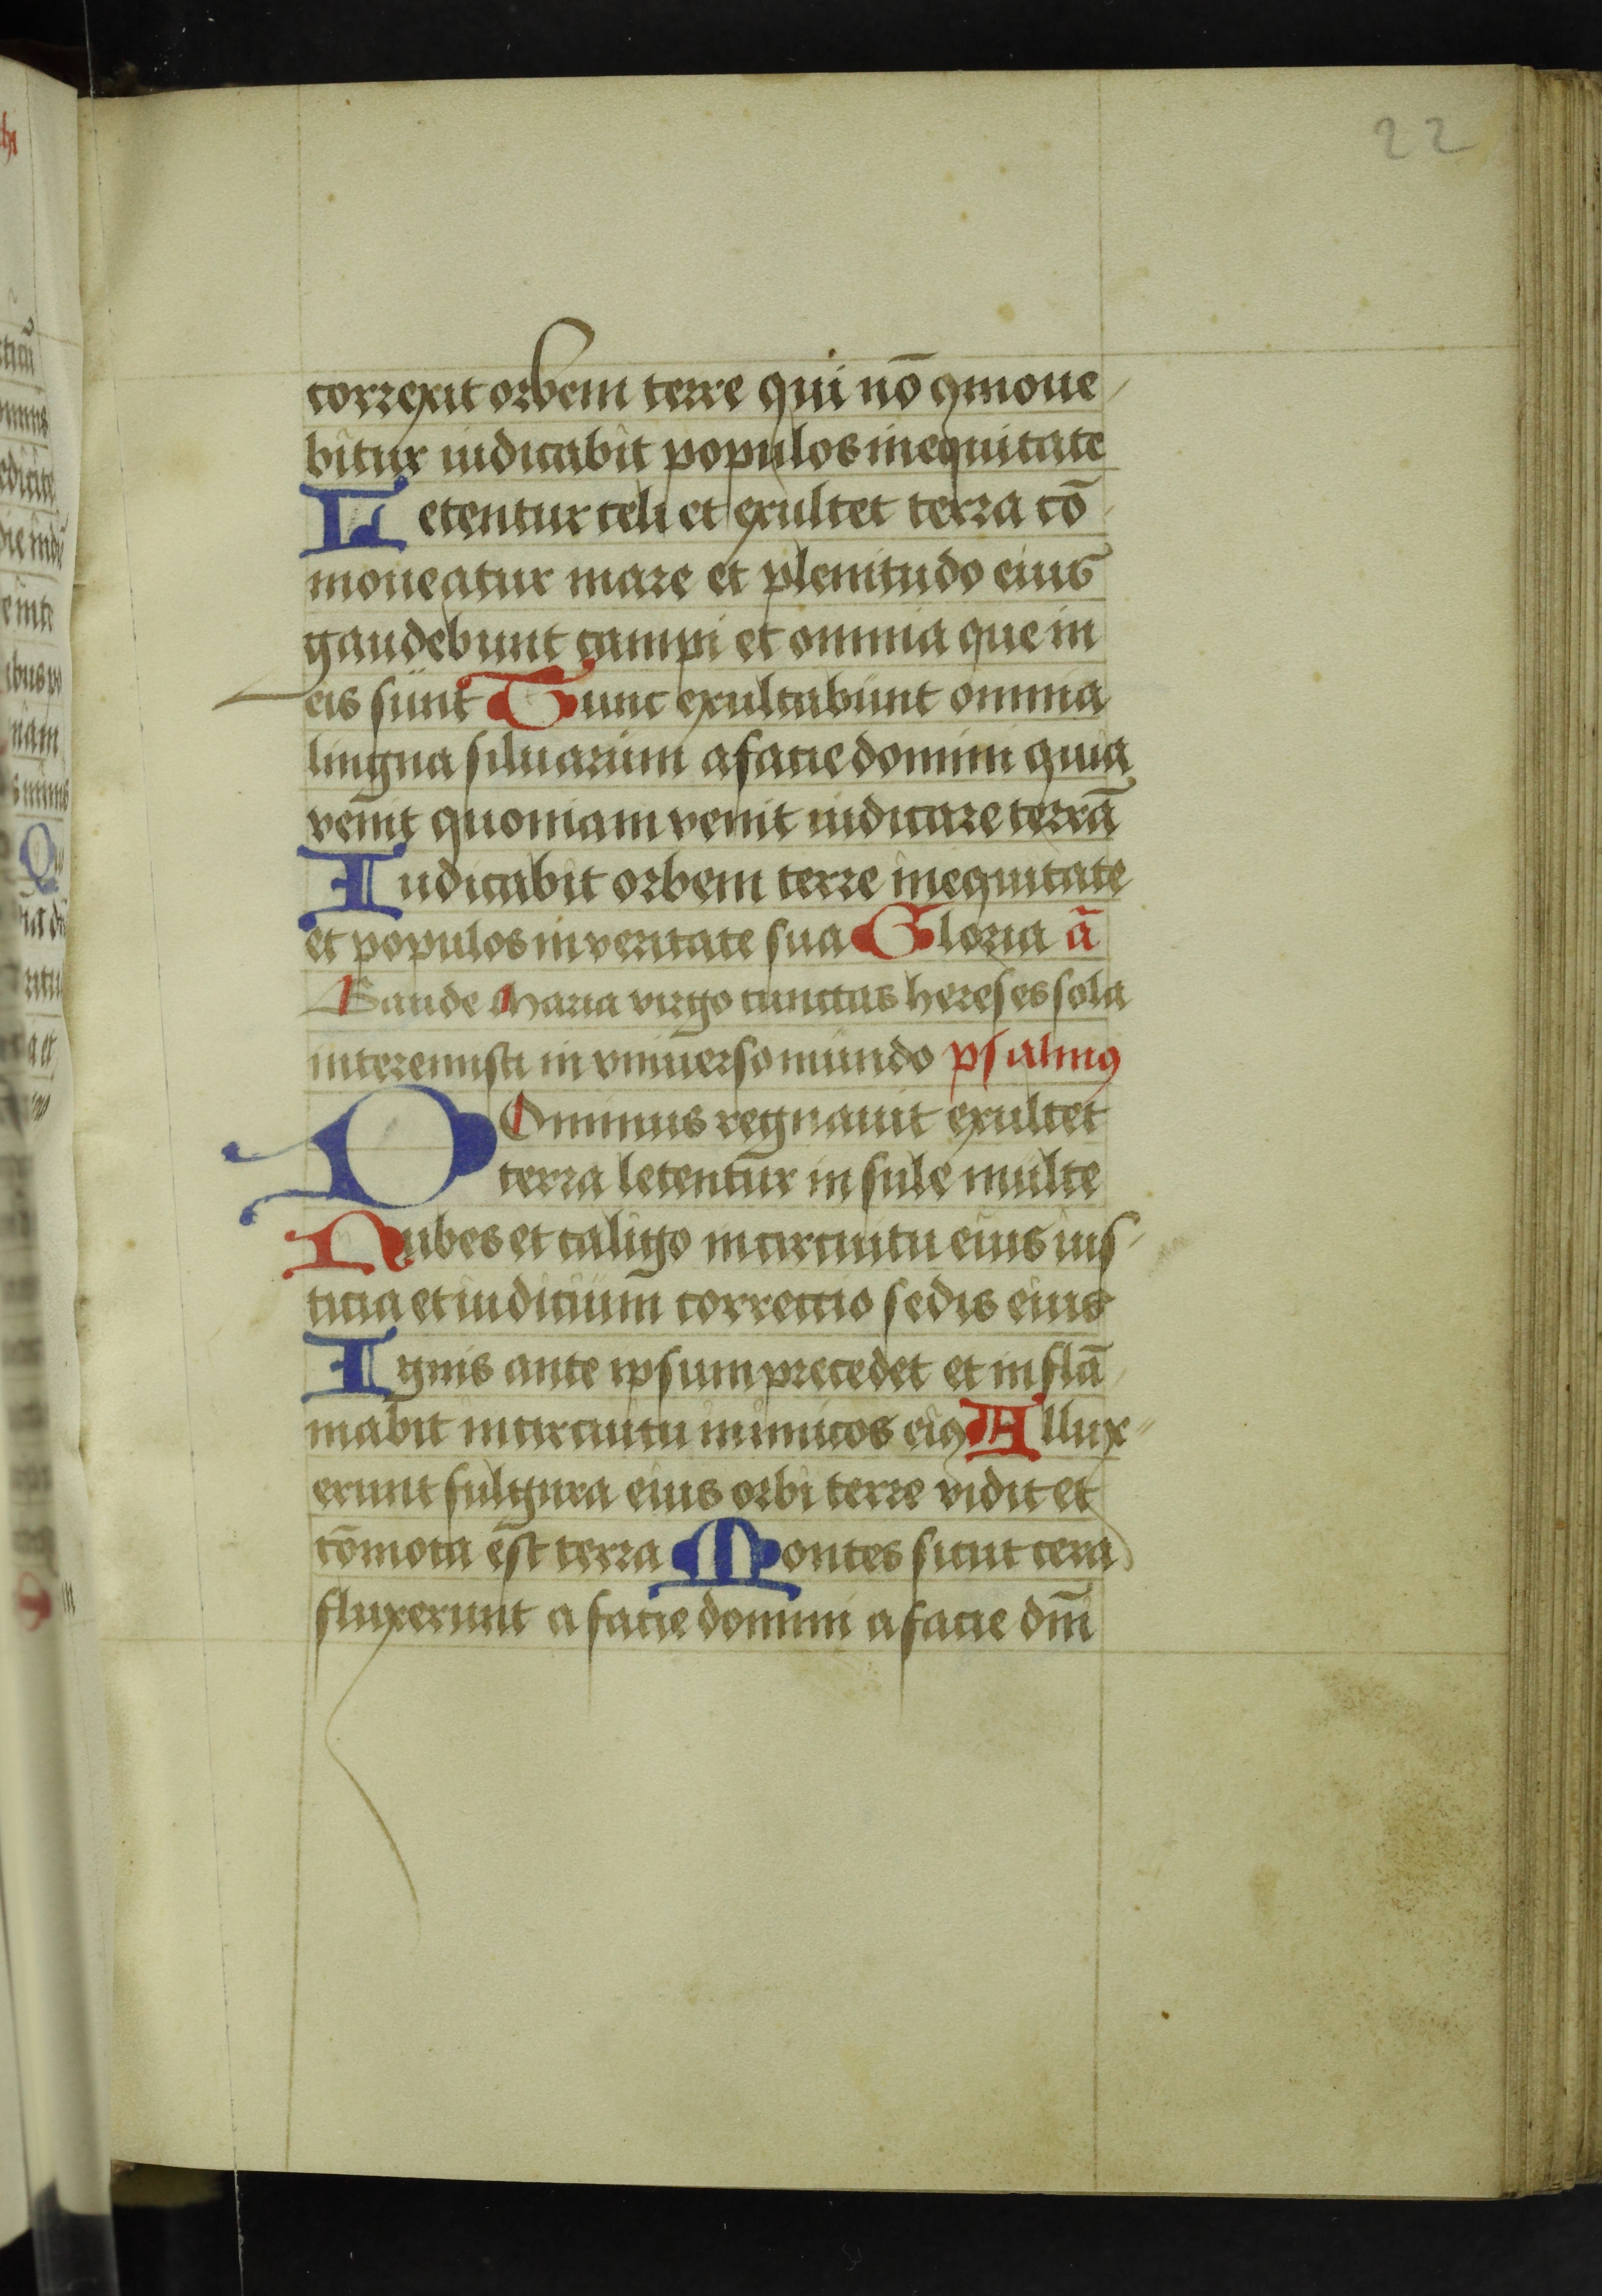 22
correxit orbem terre qui nō ꝯmoue
bitur iudicabit populos in equitate
Letentur celi et exultet terra cō
moueatur mare et plenitudo eius
gaudebunt campi et omnia que in
eis sunt Tunc exultabunt omnia
lingna siluarum a facie domini quia
venit quoniam venit iudicare terrā
Iudicabit orbem terre in equitate
et populos in veritate sua Gloria ā
Gaude Maria virgo cunctas hereses sola
interemisti in vniuerso mundo psalmꝰ
DOminus regnauit exultet
terra letentur insule multe
Nubes et caligo in circuitu eius ius
ticia et iudicium correctio sedis eius
Ignis ante ipsum precedet et inflā
mabit in circuitu inimicos eiꝰ Allux
erunt fulgura eius orbi terre vidit et
cōmota ēst terra Montes sicut cera
fluxerunt a facie domini a facie dm̄